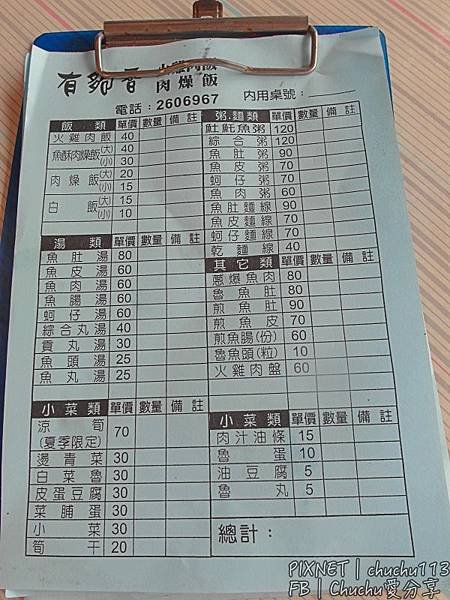 有夠香 火雞肉飯
肉燥飯
電話：2606967 內用桌號：
飯類 單價 數量 備註
火雞肉飯 40
魚酥肉燥飯(大) 40
(小) 30
肉燥飯(大) 20
(小) 15
白飯(大) 15
(小) 10
湯類 單價 數量 備註
魚肚湯 80
魚皮湯 60
魚肉湯 60
魚腸湯 60
蚵仔湯 60
綜合丸湯 40
貢丸湯 30
魚頭湯 25
魚丸湯 25
小菜類 單價 數量 備註
涼筍
(夏季限定) 70
燙青菜 30
白菜魯 30
皮蛋豆腐 30
菜脯蛋 30
小菜 30
筍干 20
粥麵類 單價 數量 備註
虱魠魚粥 120
綜合粥 120
魚肚粥 90
魚皮粥 70
蚵仔粥 70
魚肉粥 60
魚肚麵線 90
魚皮麵線 70
蚵仔麵線 70
乾麵線 40
其它類 單價 數量 備註
蔥爆魚肉 80
魯魚肚 80
煎魚肚 90
煎魚皮 70
煎魚腸(份) 60
魯魚頭(粒) 10
火雞肉盤 60
小菜類 單價 數量 備註
肉汁油條 15
魯蛋 10
油豆腐 5
魯丸 5
總計：
PIXNET | chuchu113
FB | Chuchu愛分享